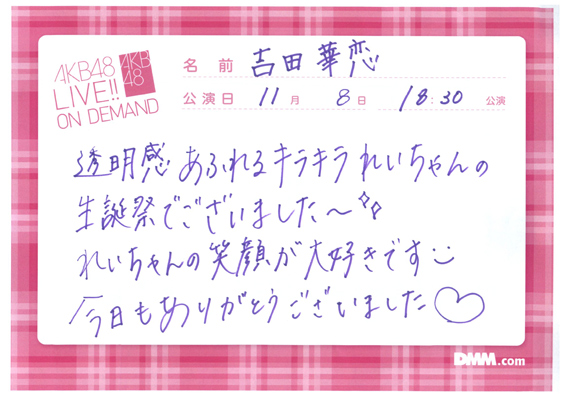 AKB48
LIVE!!
ON DEMAND
AKB
48
名前 吉田華恋
公演日 11月 8日 18:30 公演
透明感あふれるキラキラれいちゃんの
生誕祭でございました〜
れいちゃんの笑顔が大好きです
今日もありがとうございました♡
DMM.com